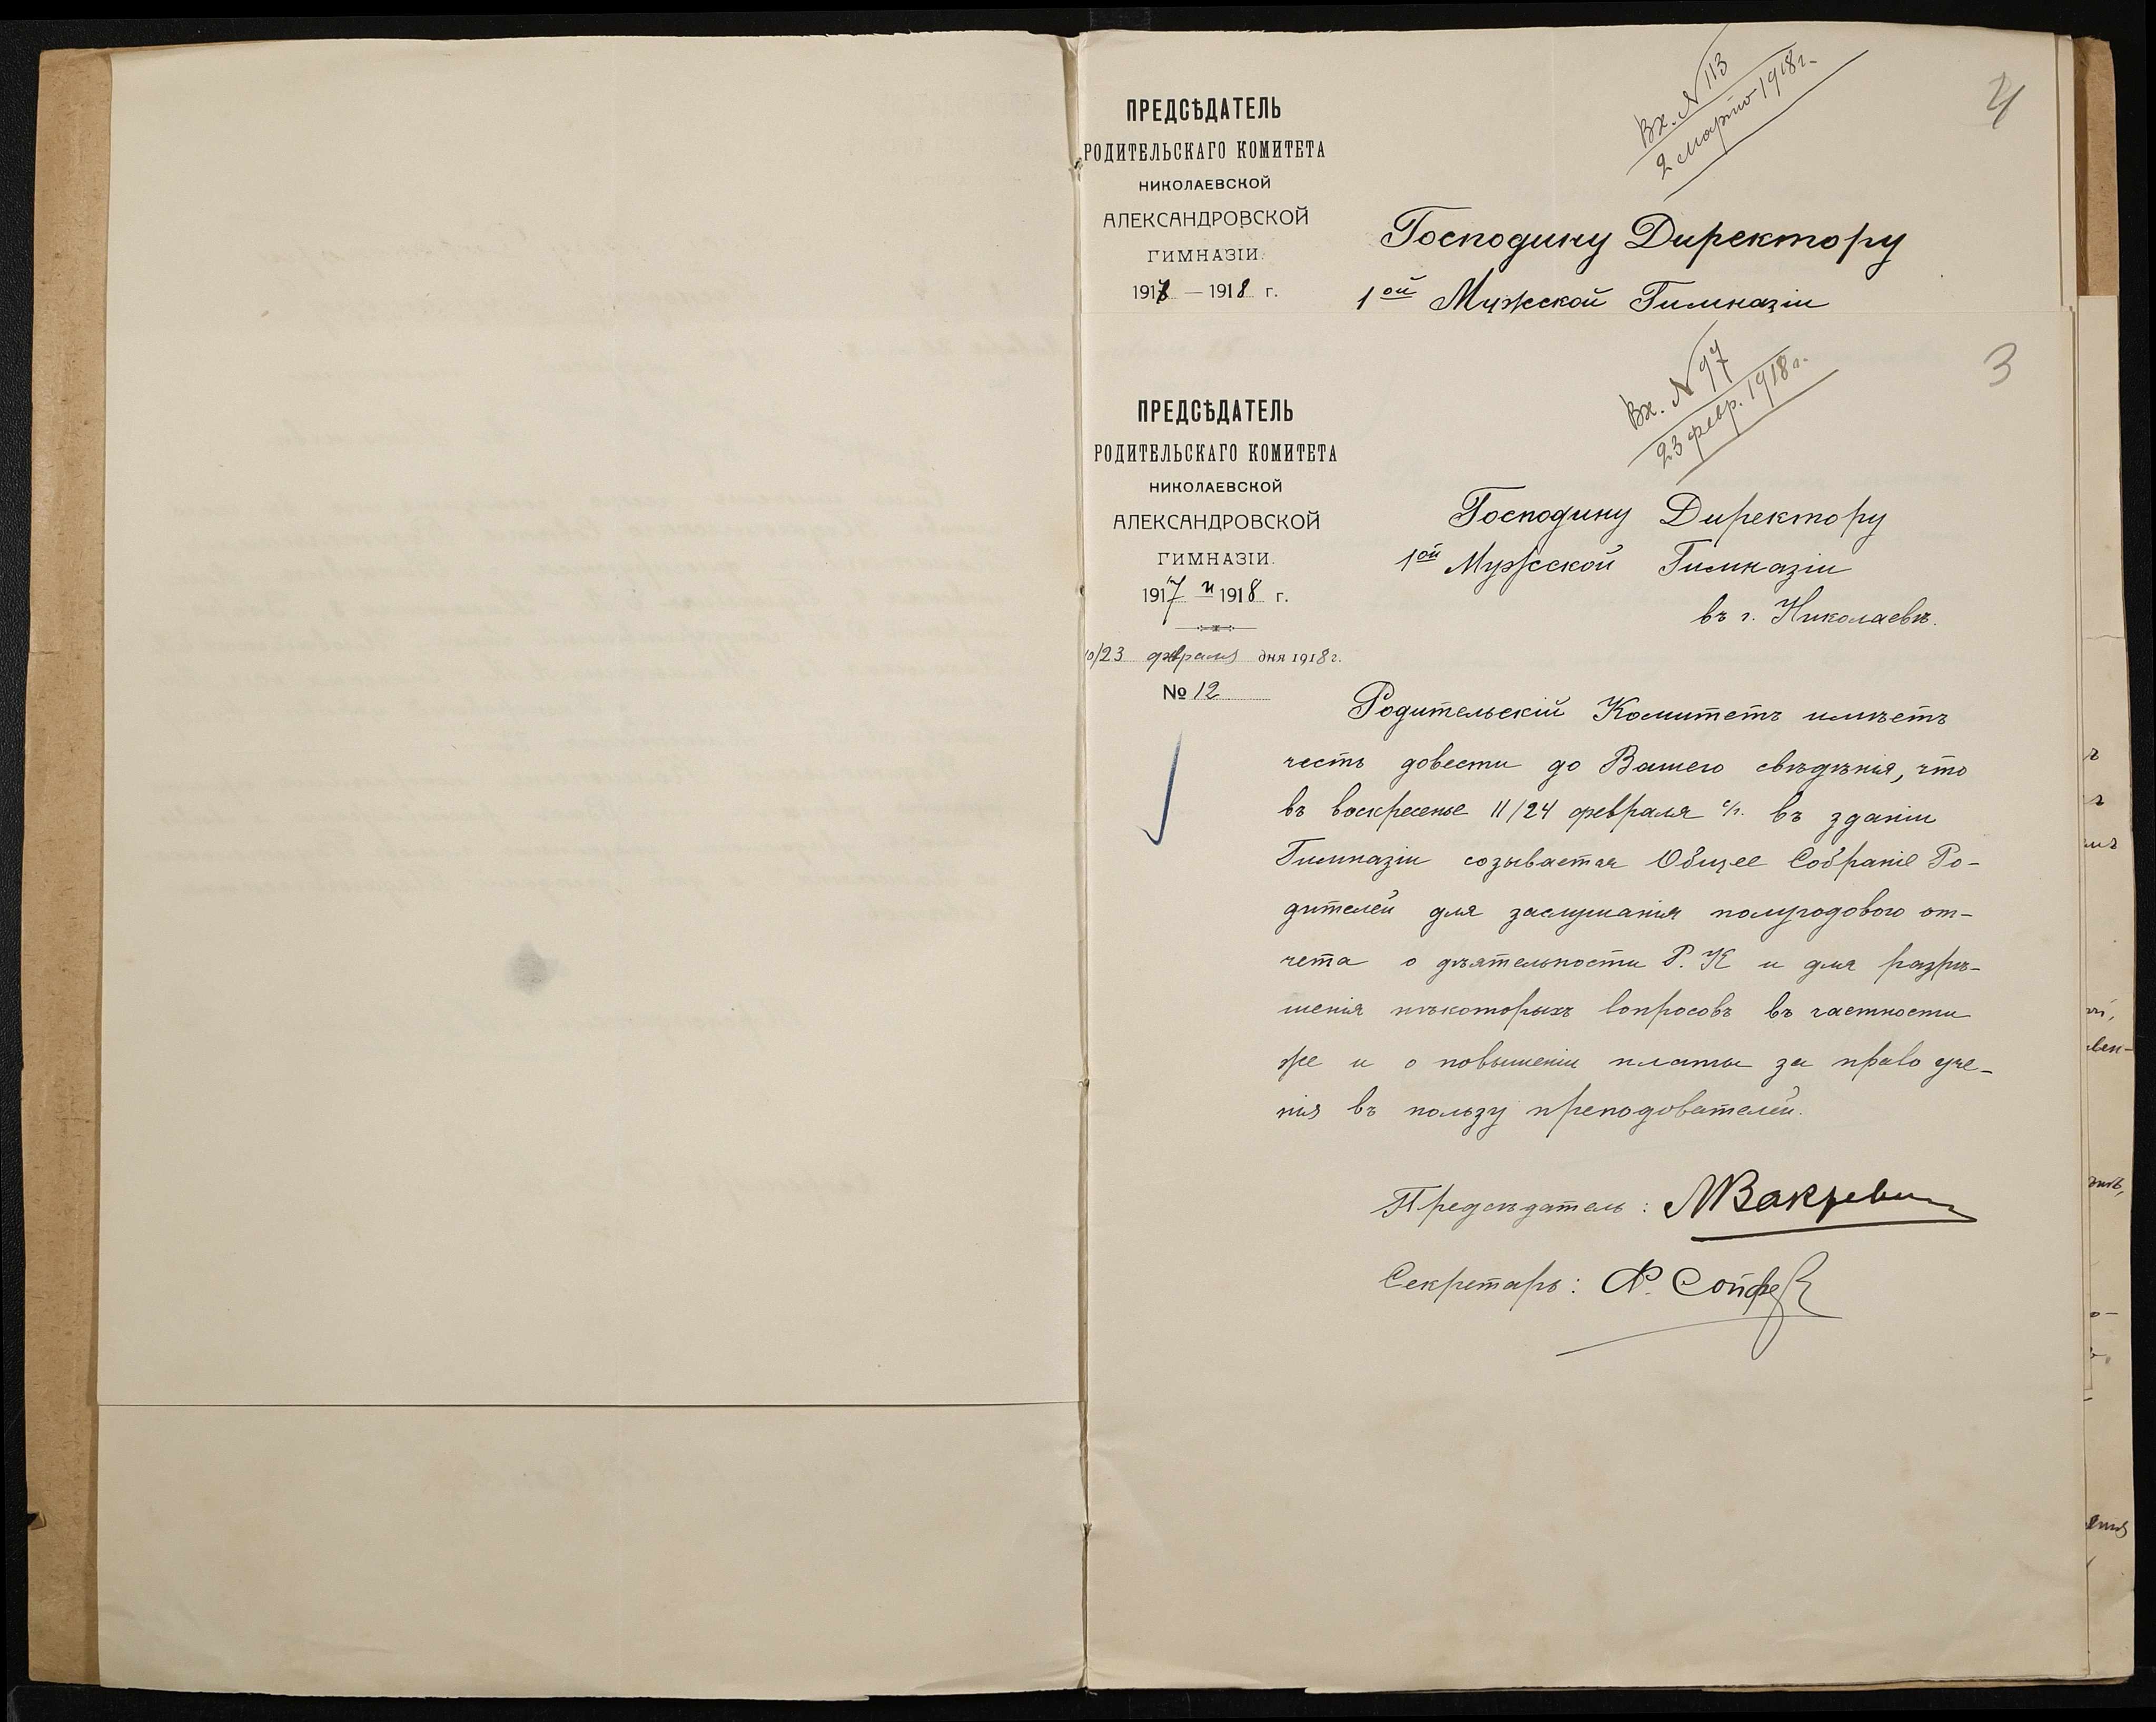 Вх. N 113
2 марта 1918 г.
4
ПРЕДСѢДАТЕЛЬ
РОДИТЕЛЬСКАГО КОМИТЕТА
НИКОЛАЕВСКОЙ
АЛЕКСАНДРОВСКОЙ
ГИМНАЗІИ.
1917 — 1918 г.
Господину Директору
1ой Мужской Гимназіи
Вх. N 97
23 февр. 1918 г.
3
ПРЕДСѢДАТЕЛЬ
РОДИТЕЛЬСКАГО КОМИТЕТА
НИКОЛАЕВСКОЙ
АЛЕКСАНДРОВСКОЙ
ГИМНАЗІИ.
1917 и 1918 г.
10/23 февраля дня 1918 г.
№ 12
Господину Директору
1ой Мужской Гимназіи
въ г. Николаевѣ.
Родительскій Комитетъ имѣетъ
честь довести до Вашего свѣдѣнія, что
въ воскресенье 11/24 февраля с/г. въ зданіи
Гимназіи созывается Общее Собраніе Ро-
дителей для заслушанія полугодового от-
чета о дѣятельности Р. К и для разрѣ-
шенія нѣкоторыхъ вопросовъ въ частности
же и о повышеніи платы за право уче-
нія въ пользу преподователей.
Предсѣдатель:
Секретарь: